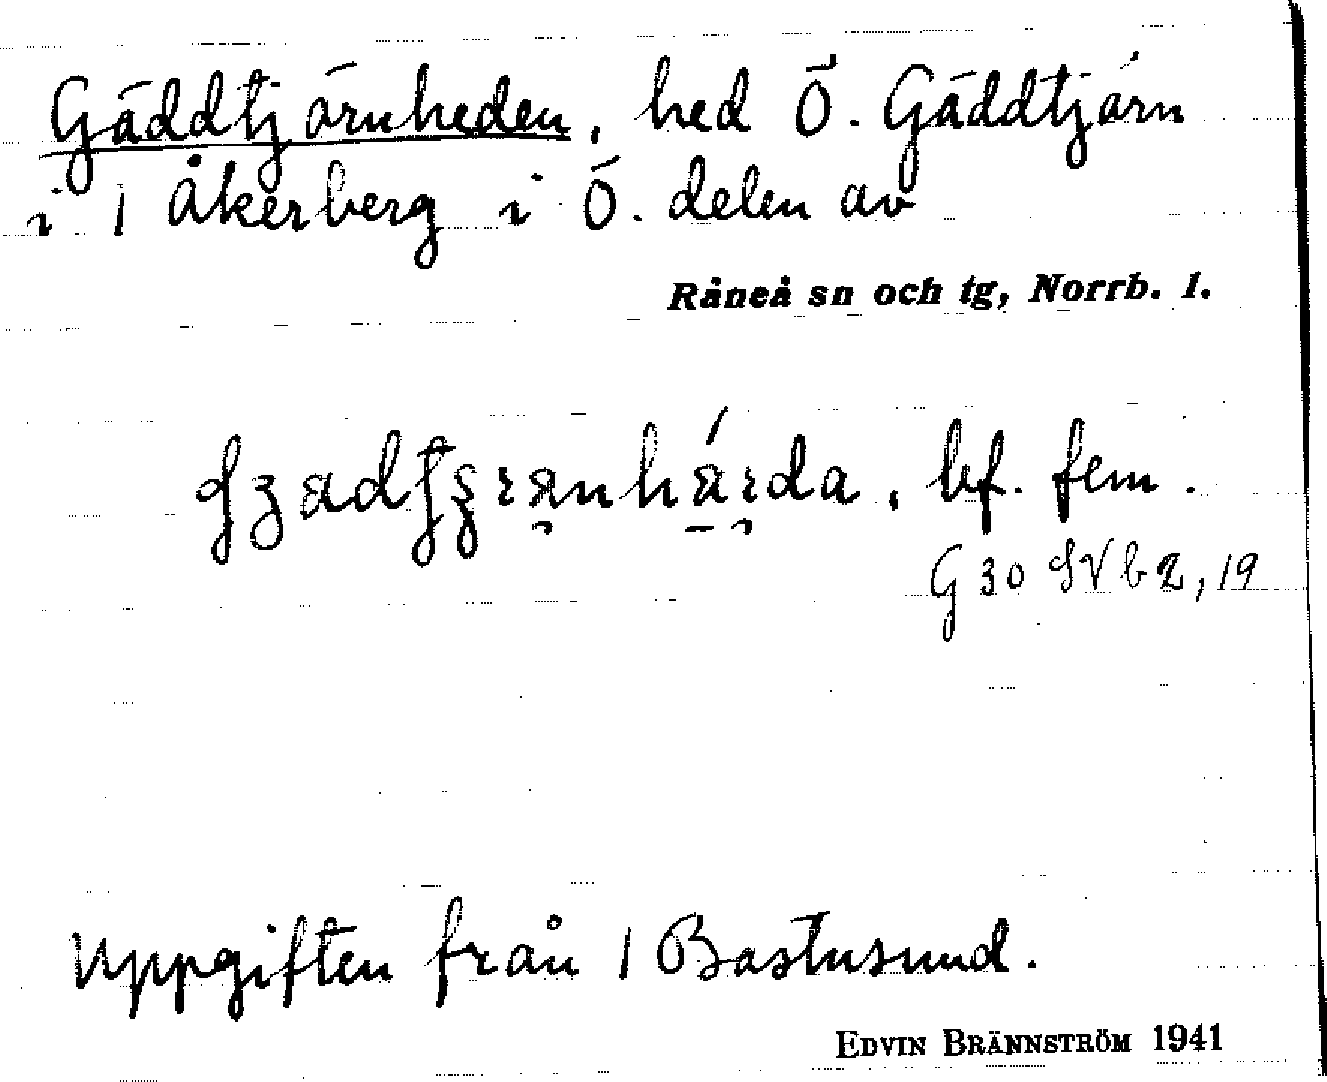 Gäddtjärnheden, hed Ö. Gäddtjärn
i 1 Åkerberg i Ö. delen av
Råneå sn och tg, Norrb. l.
bf. fem.
G 30 SV b 2, 19
Uppgiften från 1 Bastusund.
EDVIN BRÄNNSTRÖM 1941